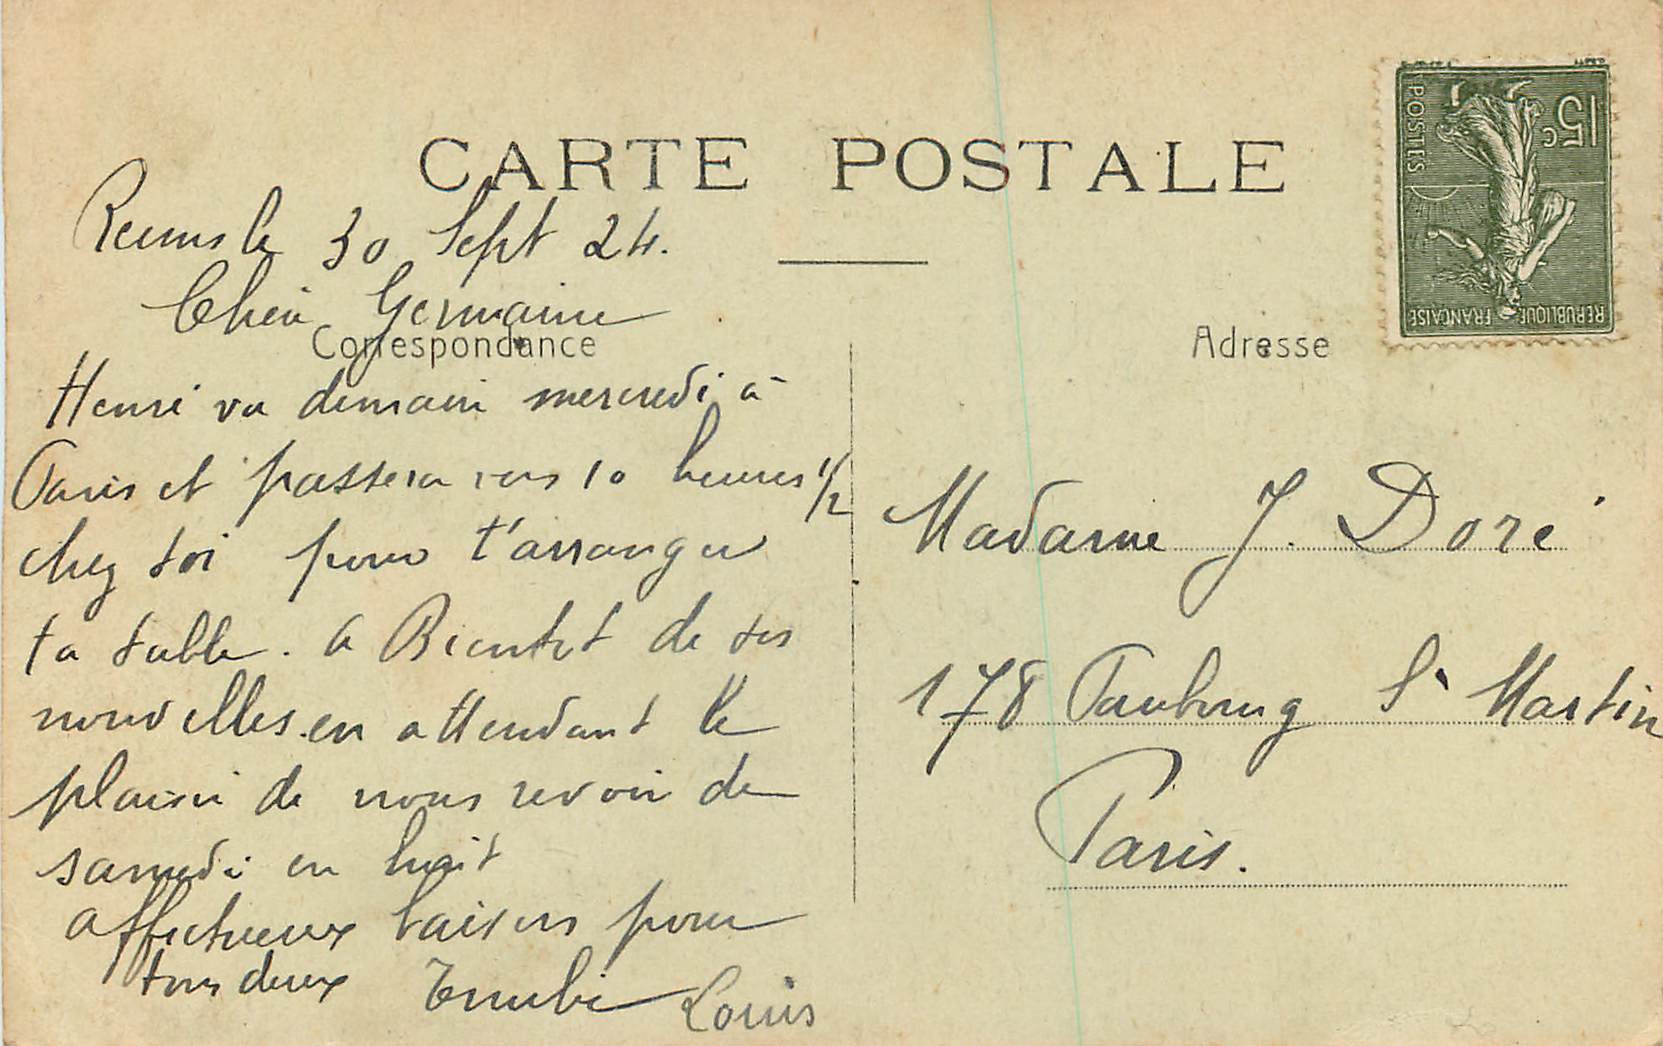 CARTE POSTALE
Reims le 30 Sept 24.
Chère Germaine
Correspondance
Henri va demain mercredi à
Paris et passera vers 10 heures 1/2
chez toi pour t'arranger
ta table. a Bientot de tes
nouvelles. en attendant le
plaisir de nous revoir de
samedi en huit
affectueux baisers pour
tous deux
Louis
POSTES
15c
REPUBLIQUE FRANÇAISE
Adresse
Madame J. Doré
178 Faubourg St Martin
Paris.